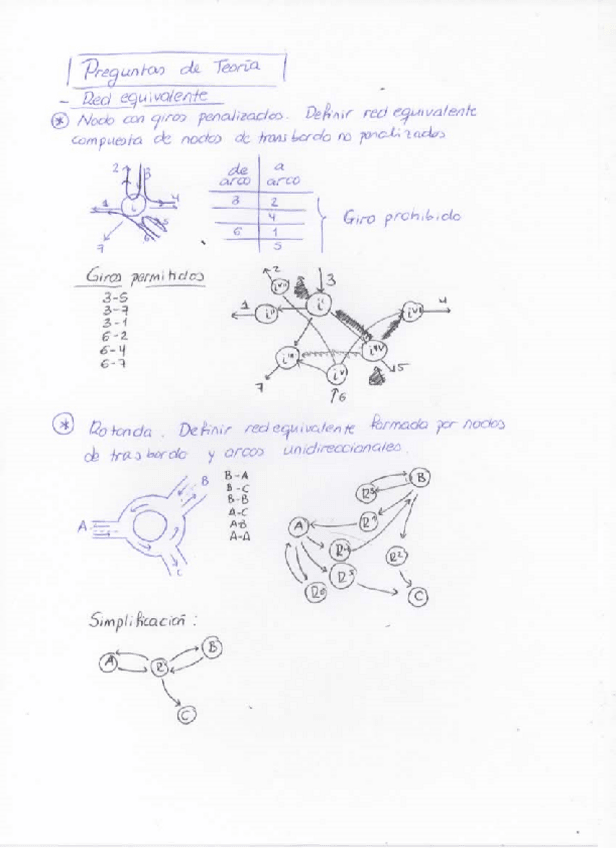 Preguntas de Teoría
- Red equivalente
* Nodo con giros penalizados. Definir red equivalente
compuesta de nodos de transbordo no penalizados
de arco a arco
3 2
4
6 1
5
Giro prohibido
1 2 3 4 5 6 7 i
Giros permitidos
3-5
3-7
3-1
6-2
6-4
6-7
1 2 3 4 5 6 7
* Rotonda. Definir red equivalente formada por nodos
de trasbordo y arcos unidireccionales.
A B C
B-A
B-C
B-B
A-C
A-B
A-A
A B C
Simplificación:
A R B
C